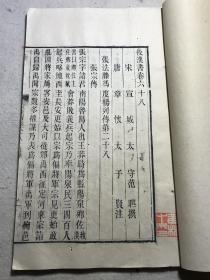 後漢書卷六十八
宋宣城太守范曄撰
唐章懷太子賢注
張法滕馮度楊列傳第二十八
張宗傳
張宗字諸君南陽魯陽人也王莽時爲縣陽泉鄉佐
會莽敗義兵起宗乃率陽泉民三四百人
起兵略地西至長安更始以宗爲偏將軍宗見更始政亂
因將家屬客安邑及大司徒鄧禹西征定河東宗詣
禹自歸禹聞宗素多權謀乃表爲偏將軍禹軍到栒邑